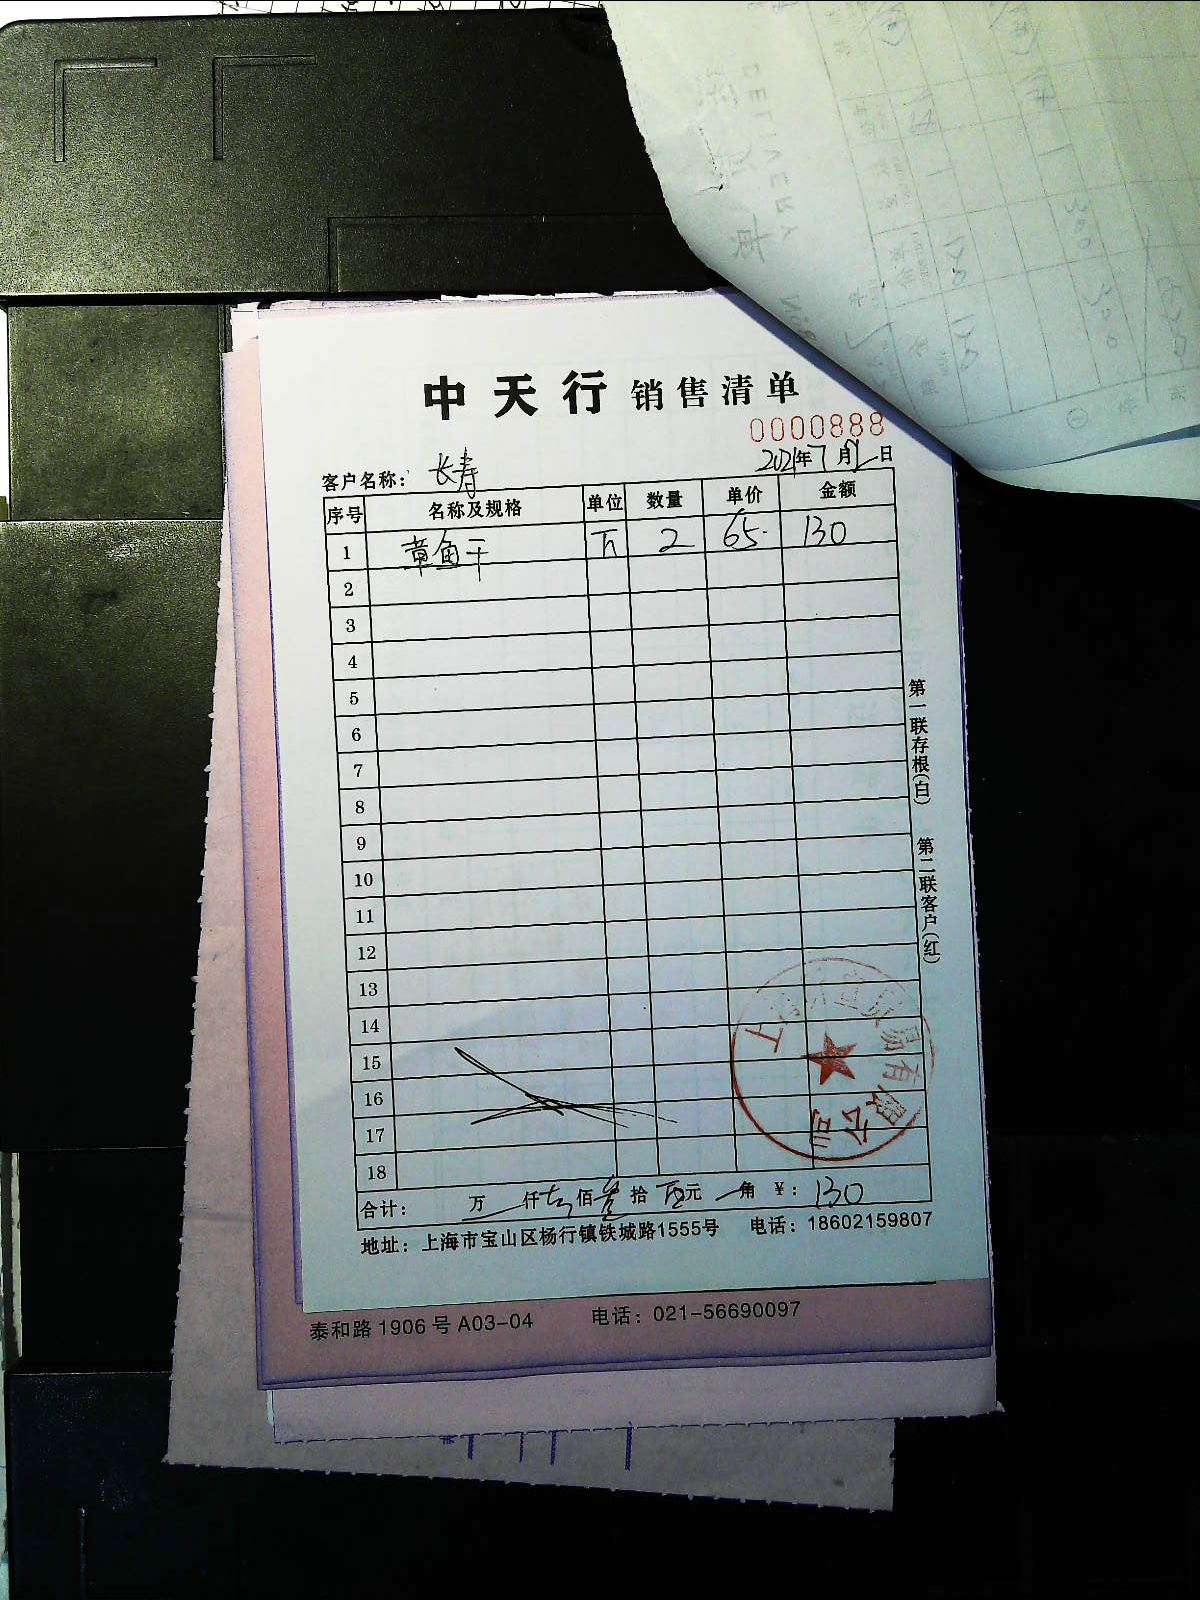 DELIVERY
中天行 销售清单
0000888
客户名称： 长寿 2021年7月 日
序号 名称及规格 单位 数量 单价 金额
1 章鱼干 斤 2 65 130
2
3
4
5
6
7
8
9
10
11
12
13
14
15
16
17
18
第一联存根（白） 第二联客户（红）
易有限公司
合计： 万 仟 佰 拾 元 角 ￥： 130
地址：上海市宝山区杨行镇铁城路1555号 电话：18602159807
泰和路1906号A03-04 电话：021-56690097